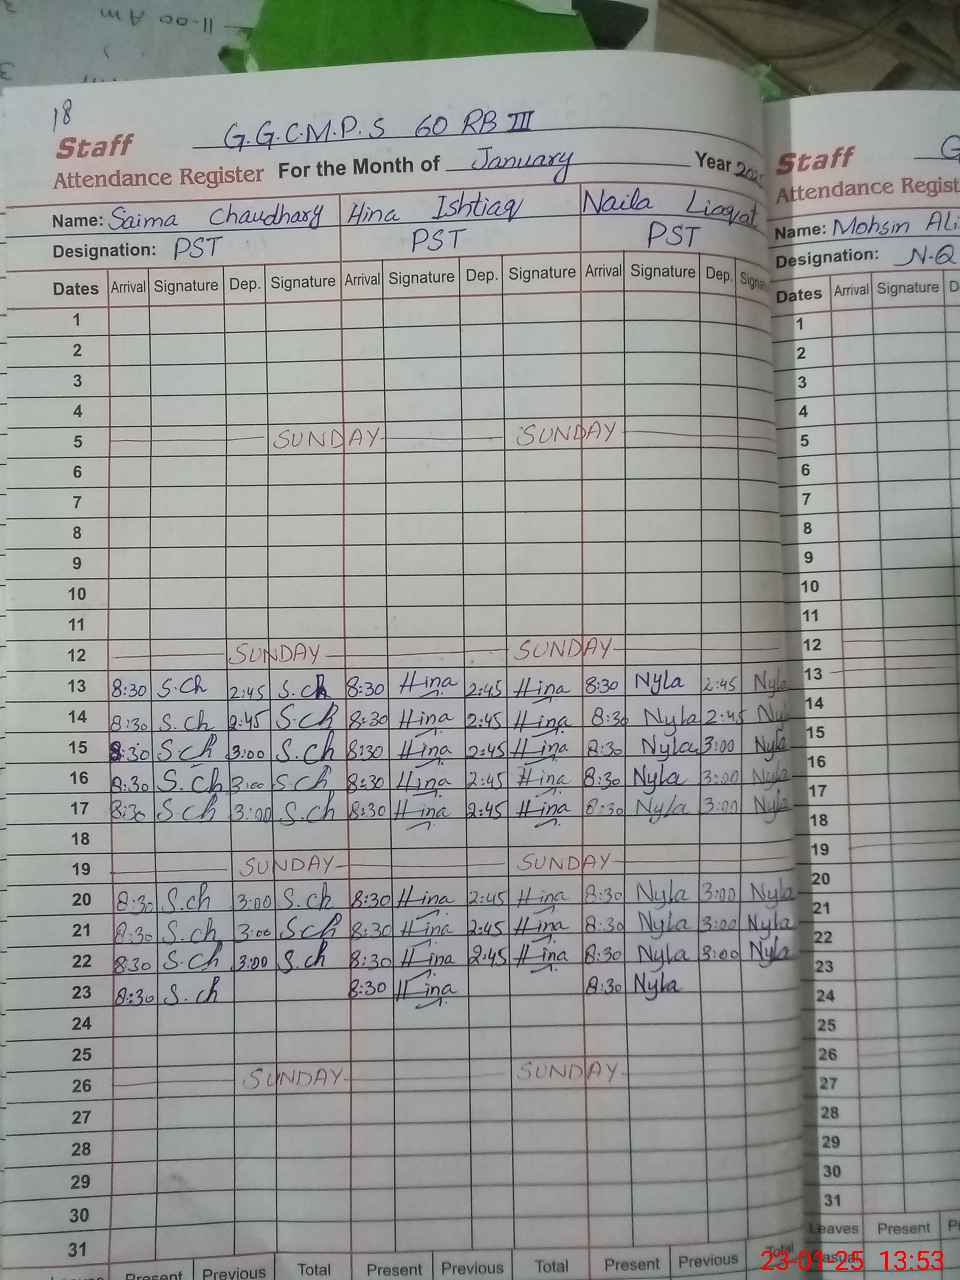 11-00 Am
18
G.G.C.M.P.S 60 RB III
Staff
Attendance Register For the Month of January Year 2025
Name: Saima Chaudhary Hina Ishtiaq Naila Liaqat
Designation: PST PST PST
Dates Arrival Signature Dep. Signature Arrival Signature Dep. Signature Arrival Signature Dep.
1
2
3
4
5 SUNDAY SUNDAY
6
7
8
9
10
11
12 SUNDAY SUNDAY
13 8:30 S.Ch 2:45 S.Ch 8:30 Hina 2:45 Hina 8:30 Nyla 2:45 Nyla
14 8:30 S.ch 2:45 S.ch 8:30 Hina 2:45 Hina 8:30 Nyla 2:45 Ny
15 8:30 S.ch 3:00 S.ch 8:30 Hina 2:45 Hina 8:30 Nyla 3:00 Nyla
16 8:30 S.ch 3:00 S.ch 8:30 Hina 2:45 Hina 8:30 Nyla 3:00 Nyla
17 8:30 S.ch 3:00 S.ch 8:30 Hina 2:45 Hina 8:30 Nyla 3:00 Nyla
18
19 SUNDAY SUNDAY
20 8:30 S.ch 3:00 S.ch 8:30 Hina 2:45 Hina 8:30 Nyla 3:00 Nyla
21 8:30 S.ch 3:00 S.ch 8:30 Hina 2:45 Hina 8:30 Nyla 3:00 Nyla
22 8:30 S.ch 3:00 S.ch 8:30 Hina 2:45 Hina 8:30 Nyla 3:00 Nyla
23 8:30 S.ch 8:30 Hina 8:30 Nyla
24
25
26 SUNDAY SUNDAY
27
28
29
30
31
Present Previous Total Present Previous Total Present Previous Total
Staff G
Attendance Regist
Name: Mohsin Ali
Designation: N-Q
Dates Arrival Signature D
1
2
3
4
5
6
7
8
9
10
11
12
13
14
15
16
17
18
19
20
21
22
23
24
25
26
27
28
29
30
31
Leaves Present P
Casual
23-01-25 13:53